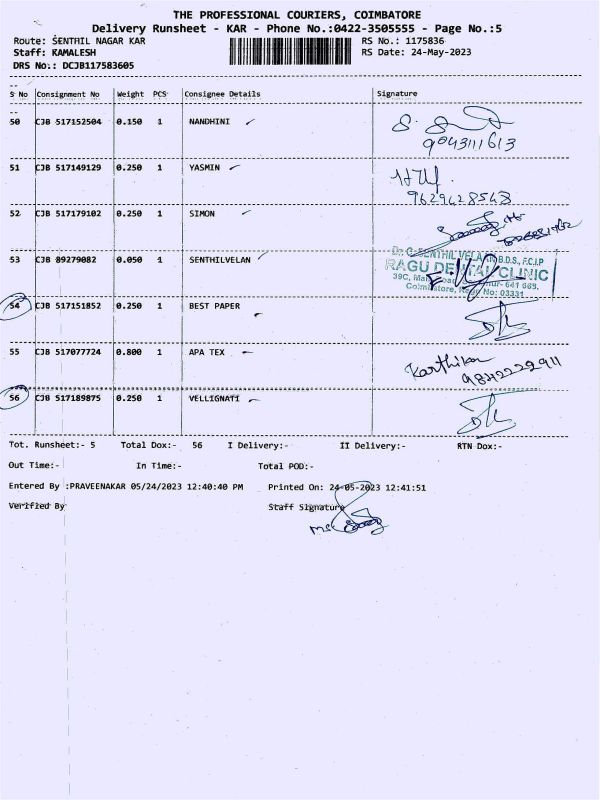 THE PROFESSIONAL COURIERS, COIMBATORE
Delivery Runsheet - KAR - Phone No.:0422-3505555 - Page No.:5
Route: SENTHIL NAGAR KAR RS No.: 1175836
Staff: KAMALESH RS Date: 24-May-2023
DRS No.: DCJB117583605
S No Consignment No Weight PCS Consignee Details Signature
50 CJB 517152504 0.150 1 NANDHINI
9043111613
51 CJB 517149129 0.250 1 YASMIN
9629428548
52 CJB 517179102 0.250 1 SIMON
53 CJB 89279082 0.050 1 SENTHILVELAN
B.D.S., F.C.I.P
RAGU DENTAL CLINIC
39C, 641 669.
No: 03331
54 CJB 517151852 0.250 1 BEST PAPER
55 CJB 517077724 0.800 1 APA TEX Karthika
9842222911
56 CJB 517189875 0.250 1 VELLIGNATI
Tot. Runsheet:- 5 Total Dox:- 56 I Delivery:- II Delivery:- RTN Dox:-
Out Time:- In Time:- Total POD:-
Entered By :PRAVEENAKAR 05/24/2023 12:40:40 PM Printed On: 24-05-2023 12:41:51
Verified By Staff Signature